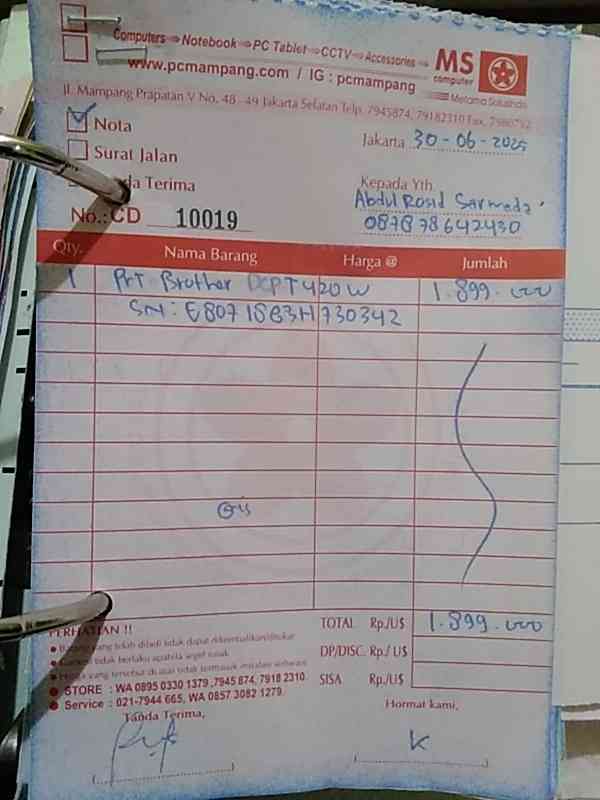 Computers Notebook PC Tablet CCTV Accessories
MS
computer
www.pcmampang.com / IG : pcmampang
Metama Solusindo
Jl. Mampang Prapatan V No. 48 - 49 Jakarta Selatan Telp. 7945874, 79182310 Fax. 7980792
Nota
Jakarta 30-06-2025
Surat Jalan
Terima
Kepada Yth.
Abdul Rosid Sarmada
087878642430
No.: CD 10019
Qty. Nama Barang Harga @ Jumlah
1 Prt Brother DCPT420W 1.899.000
SN: E80718B3H730342
TOTAL Rp./U$ 1.899.000
PERHATIAN !!
Barang yang telah dibeli tidak dapat dikembalikan/ditukar
DP/DISC. Rp./ U$
Garansi tidak berlaku apabila segel rusak
Harga yang tersebut di atas tidak termasuk instalasi software
SISA Rp./U$
STORE : WA 0895 0330 1379 ,7945 874, 7918 2310.
Service : 021-7944 665, WA 0857 3082 1279.
Tanda Terima,
Hormat kami,